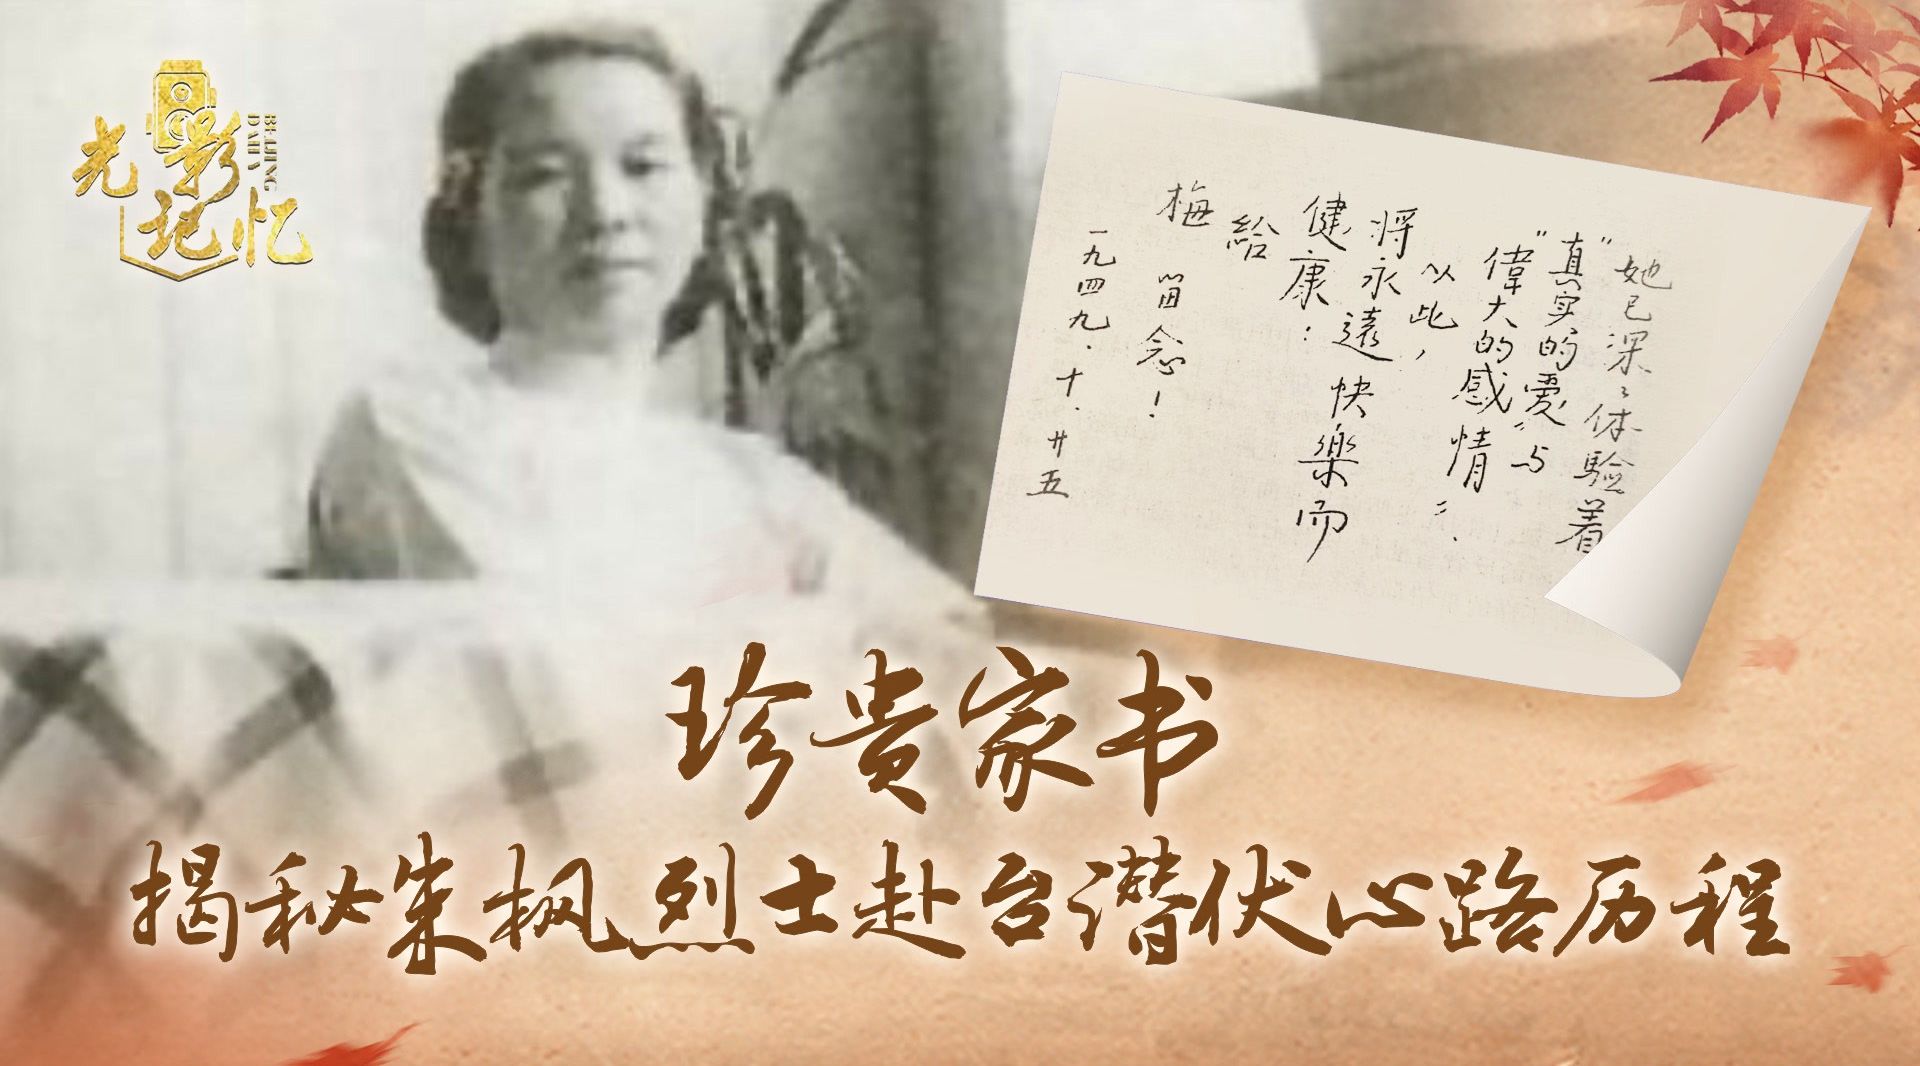 光影记忆
BEIJING
DAILY
她已深深体验着
"真实的爱"与
偉大的感情——
以此，
将永遠快樂而
健康：
給
梅 留念！
一九四九、十、廿五
珍贵家书
揭秘朱枫烈士赴台潜伏心路历程